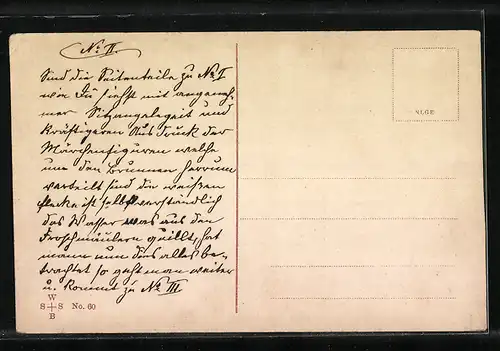 No II.
Sind die Seitenteile zu No I
wie Du siehst mit angeneh-
mer Sitzgelegeit und
kräftigeren Ausdruck der
Märchenfiguren welche
um den Brunnen herrum
verteilt sind die weißen
flecke ist selbstverständlich
das Wasser was aus den
Froschmäulern quillt, hat
mann nun dies alles be-
trachtet so geht man weiter
u. kommt zu No III.
W
8+8 No. 60
B